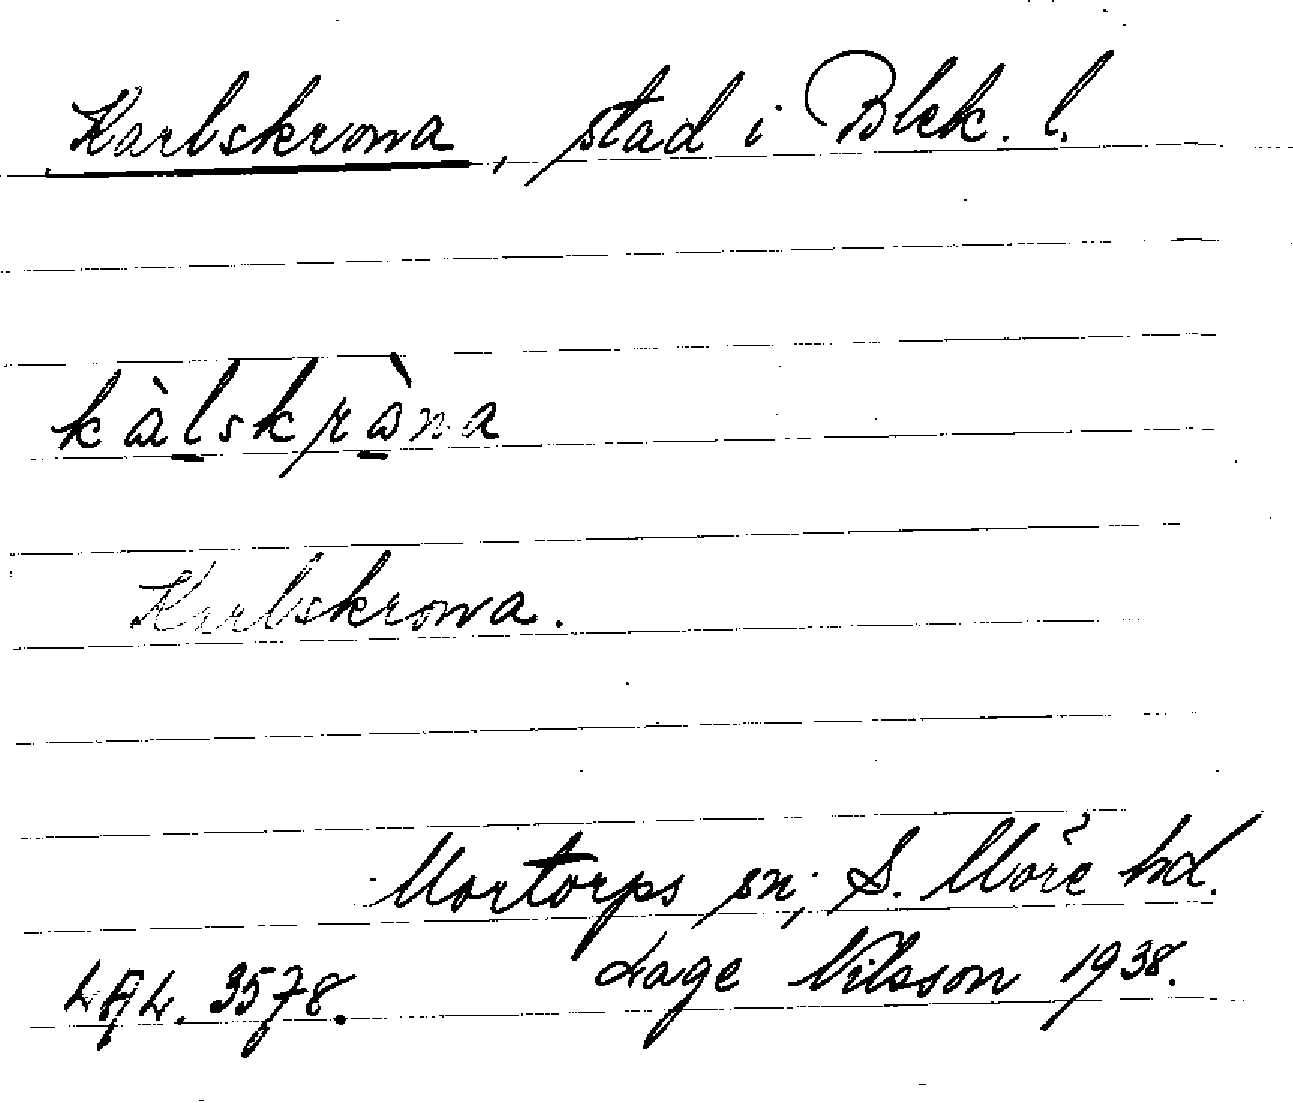 Karlskrona, stad i Blek. l.
kàlskrònа
Karlskrona.
Mortorps sn; S. Möre hd.
LAL. 3578. Lage Nilsson 1938.